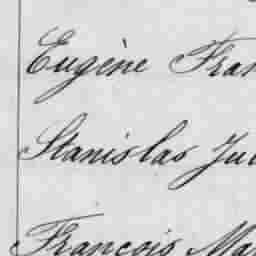 Eugène Fran
Stanislas Ju
François Ma